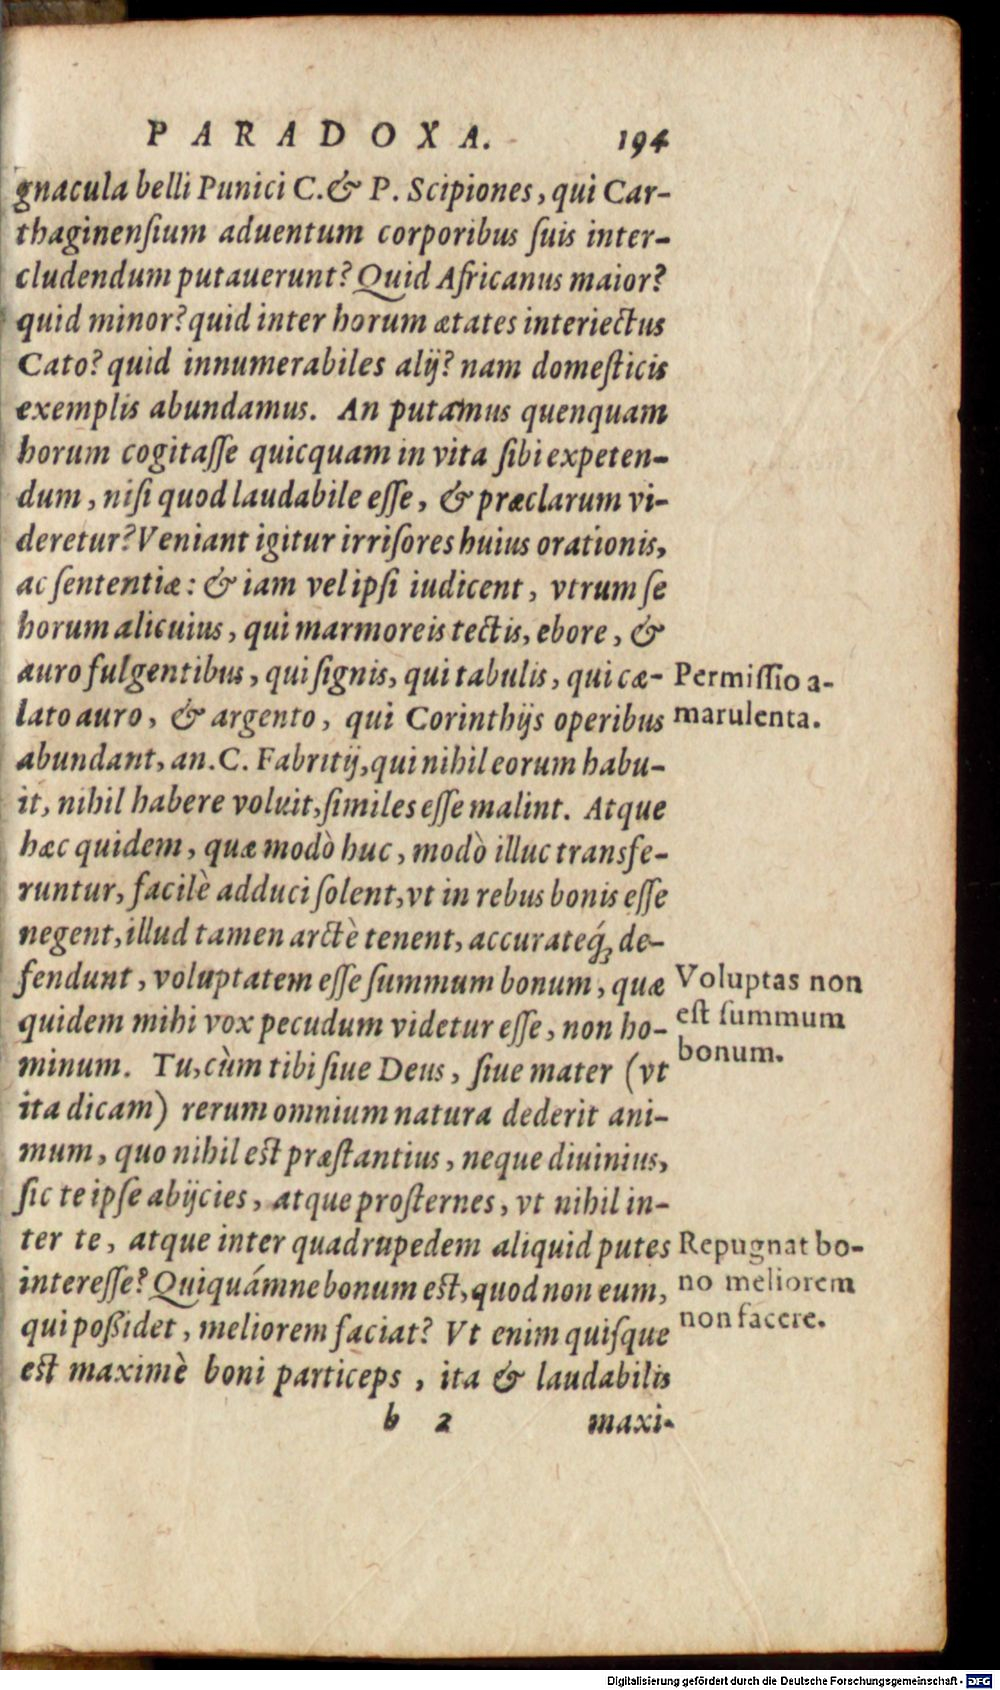 PARADOXA. 194
gnacula belli Punici C. & P. Scipiones, qui Car-
thaginenſium aduentum corporibus ſuis inter-
cludendum putauerunt? Quid Africanus maior?
quid minor? quid inter horum ætates interiectus
Cato? quid innumerabiles alij? nam domeſticis
exemplis abundamus. An putamus quenquam
horum cogitaſſe quicquam in vita ſibi expeten-
dum, niſi quod laudabile eſſe, & præclarum vi-
deretur? Veniant igitur irriſores huius orationis,
ac ſententiæ: & iam vel ipſi iudicent, vtrum ſe
horum alicuius, qui marmoreis tectis, ebore, &
auro fulgentibus, qui ſignis, qui tabulis, qui cæ-
lato auro, & argento, qui Corinthijs operibus
abundant, an. C. Fabritij, qui nihil eorum habu-
it, nihil habere voluit, ſimiles eſſe malint. Atque
hæc quidem, quæ modò huc, modò illuc transfe-
runtur, facilè adduci ſolent, vt in rebus bonis eſſe
negent, illud tamen arctè tenent, accurateq́; de-
fendunt, voluptatem eſſe ſummum bonum, quæ
quidem mihi vox pecudum videtur eſſe, non ho-
minum. Tu, cùm tibi ſiue Deus, ſiue mater (vt
ita dicam) rerum omnium natura dederit ani-
mum, quo nihil est præſtantius, neque diuinius,
ſic te ipſe abijcies, atque proſternes, vt nihil in-
ter te, atque inter quadrupedem aliquid putes
intereſſe? Quiquámne bonum est, quod non eum,
qui poßidet, meliorem faciat? Vt enim quiſque
est maximè boni particeps, ita & laudabilis
b 2 maxi-
Permiſſio a-
marulenta.
Voluptas non
est ſummum
bonum.
Repugnat bo-
no meliorem
non facere.
Digitalisierung gefördert durch die Deutsche Forschungsgemeinschaft - DFG